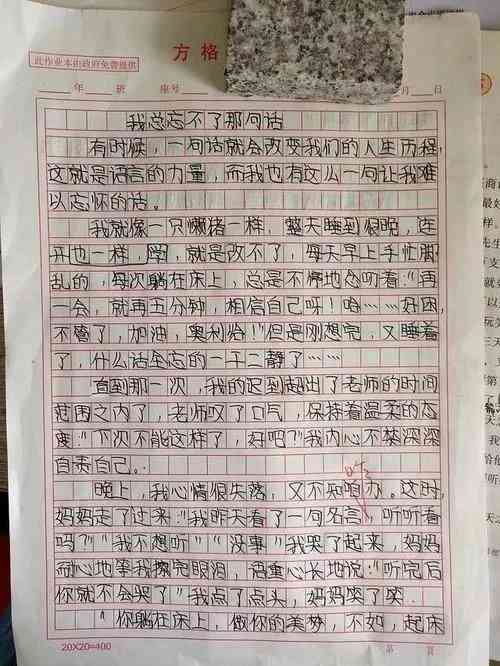 此作业本由政府免费提供
方格
年 班 座号 月 日
我总忘不了那句话
有时候，一句话就会改变我们的人生历程，
这就是语言的力量，而我也有这么一句让我难
以忘怀的话。
我就像一只懒猪一样，整天睡到很晚，连
开也一样，学，就是改不了，每天早上手忙脚
乱的，每次躺在床上，总是不停地念叨着："再
一会，就再五分钟，相信自己呀！哈……好困，
不管了，加油，奥利给！"但是刚想完，又睡着
了，什么话全忘的一干二静了……
直到那一次，我的迟到超出了老师的时间
范围之内了，老师叹了口气，保持着温柔的态
度："下次不能这样了，好吧？"我内心不禁深深
自责自己。
晚上，我心情很失落，又不知咱办。这时，
妈妈走了过来："我昨天看了一句名言，听听看
吗？""我不想听""没事"我哭了起来，妈妈
耐心地等我擦完眼泪，语重心长地说："听完后
你就不会哭了"我点了点头，妈妈笑了笑
"你躺在床上，做你的美梦，不如，起床
20X20=400
第 页